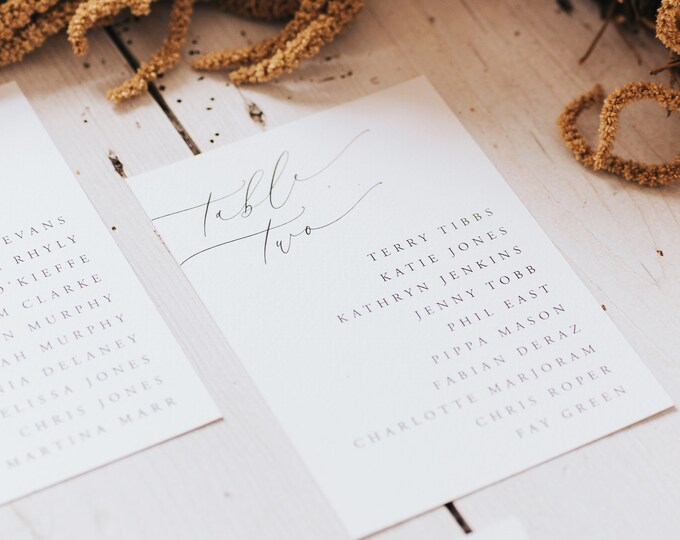 EVANS
RHYLY
O'KIEFFE
CLARKE
MURPHY
MURPHY
DELANEY
MELISSA JONES
CHRIS JONES
MARTINA MARR
Table
Two
TERRY TIBBS
KATIE JONES
KATHRYN JENKINS
JENNY TOBB
PHIL EAST
PIPPA MASON
FABIAN DERAZ
CHARLOTTE MARJORAM
CHRIS ROPER
FAY GREEN